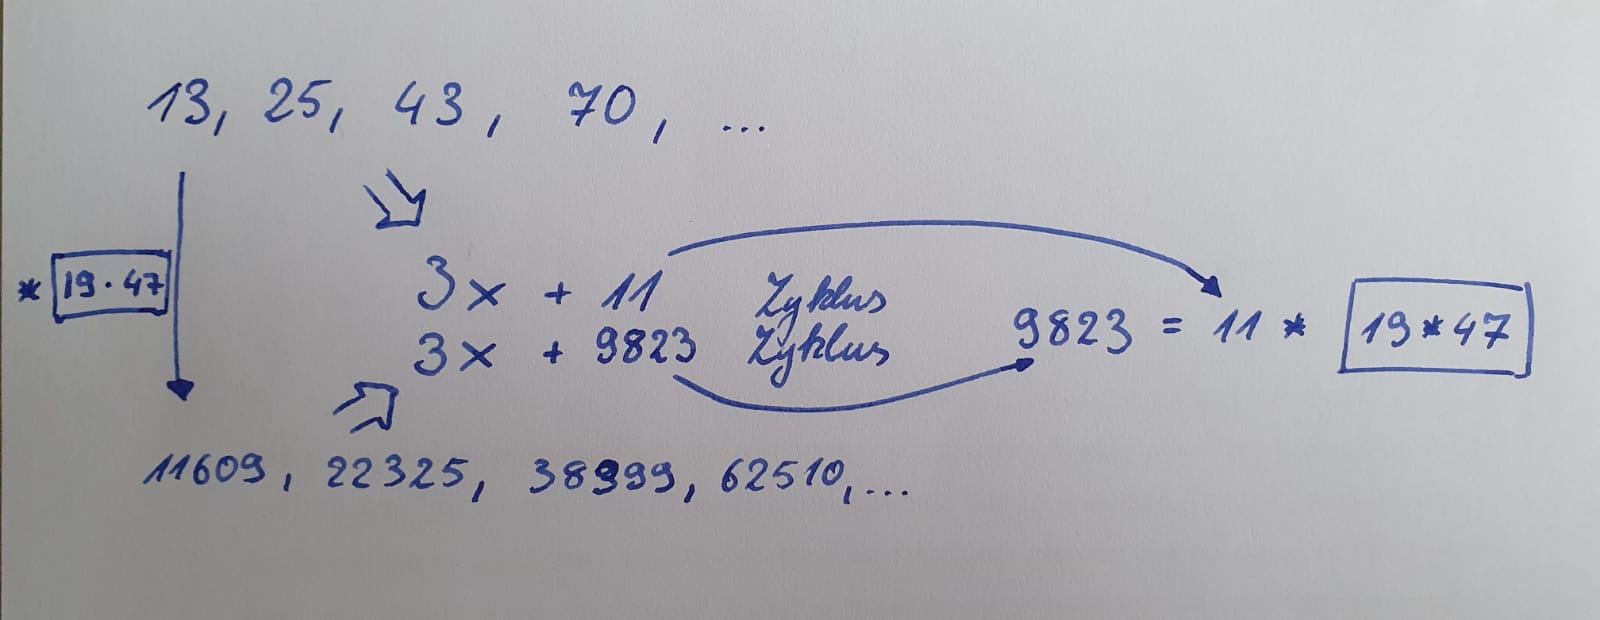 13, 25, 43, 70, ...
* 19·47
3x + 11 Zyklus
3x + 9823 Zyklus
9823 = 11 * 19*47
11609, 22325, 38399, 62510, ...